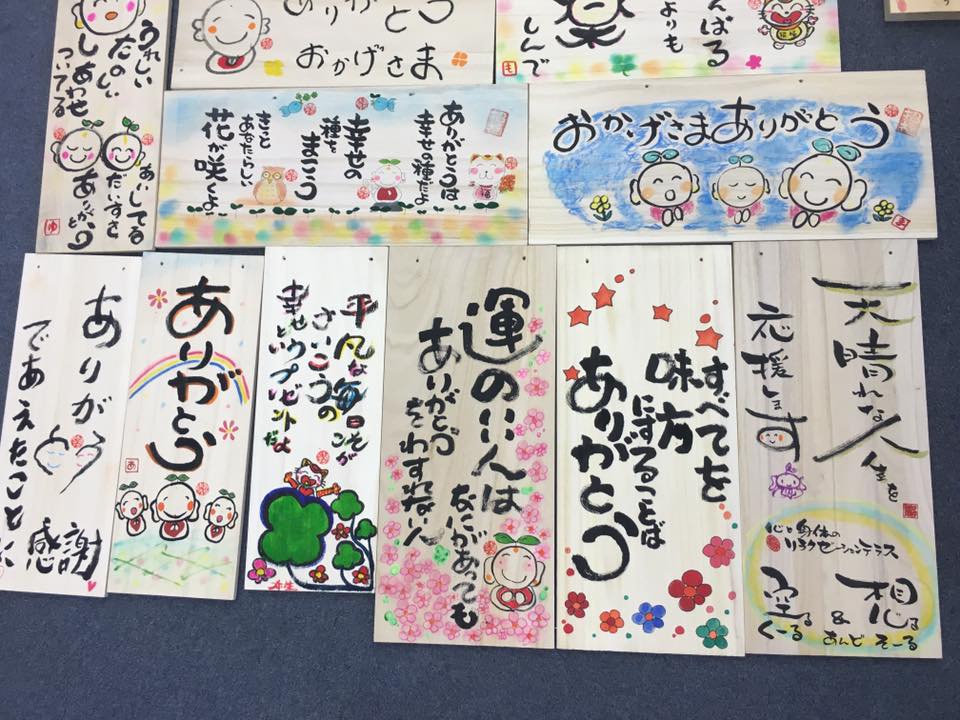 うれしい
たのしい
しあわせ
つってる
あいしてる
だいすき
ありがとう
ゆ
ありがとう
おかげさま
んばる
よりも
楽
しんで
も
ありがとうは
幸せの種だよ
幸せの
種を
まこう
きっと
あなたらしい
花が咲くよ
おかげさまありがとう
ありがとう
であえたこと
感謝
ありがとう
あ
平凡な毎日こそが
さいこうの
幸せという
プレゼントだよ
運のいい人は
なにがあっても
ありがとう
をわすれない人
すべてを
味方
にすることば
ありがとう
天晴れな人生を
応援します
心と身体の
リラクゼーションテラス
空る
くーる
&
あんど
想る
そーる